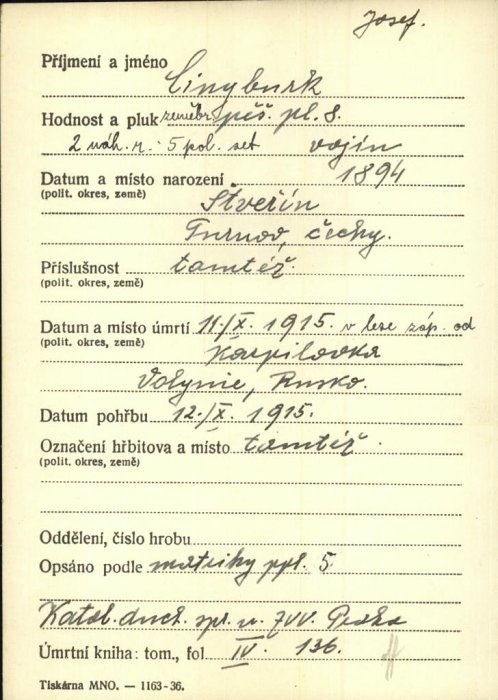 Josef.
Příjmení a jméno Cinyburk
Hodnost a pluk zeměbr. pěš. pl. 8.
2 náh. r. 5 pol. set vojín
Datum a místo narození 1894
(polit. okres, země) Stveřín
Turnov, Čechy.
Příslušnost tamtéž.
(polit. okres, země)
Datum a místo úmrtí 11./X. 1915. v lese záp. od
(polit. okres, země) Karpilovka
Volynie, Rusko.
Datum pohřbu 12./X. 1915.
Označení hřbitova a místo tamtéž.
(polit. okres, země)
Oddělení, číslo hrobu
Opsáno podle matriky ppl. 5
Katol. duch. spr. u ZVV. Praha
Úmrtní kniha: tom., fol. IV. 136.
Tiskárna MNO. — 1163-36.